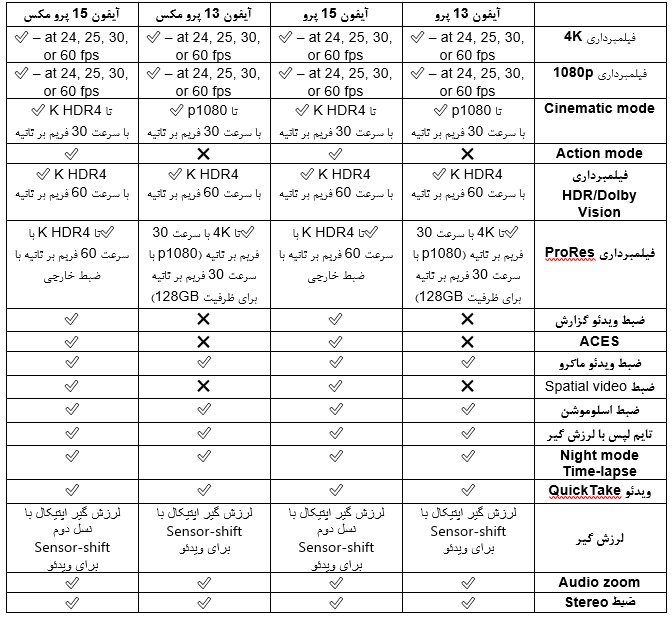 آیفون 13 پرو
آیفون 15 پرو
آیفون 13 پرو مکس
آیفون 15 پرو مکس
فیلمبرداری 4K
✅ – at 24, 25, 30,
or 60 fps
✅ – at 24, 25, 30,
or 60 fps
✅ – at 24, 25, 30,
or 60 fps
✅ – at 24, 25, 30,
or 60 fps
فیلمبرداری 1080p
✅ – at 24, 25, 30,
or 60 fps
✅ – at 24, 25, 30,
or 60 fps
✅ – at 24, 25, 30,
or 60 fps
✅ – at 24, 25, 30,
or 60 fps
Cinematic mode
تا p1080 ✅
با سرعت 30 فریم بر ثانیه
تا K HDR4 ✅
با سرعت 30 فریم بر ثانیه
تا p1080 ✅
با سرعت 30 فریم بر ثانیه
تا K HDR4 ✅
با سرعت 30 فریم بر ثانیه
Action mode
❌
✅
❌
✅
فیلمبرداری
HDR/Dolby
Vision
K HDR4 ✅
با سرعت 60 فریم بر ثانیه
K HDR4 ✅
با سرعت 60 فریم بر ثانیه
K HDR4 ✅
با سرعت 60 فریم بر ثانیه
K HDR4 ✅
با سرعت 60 فریم بر ثانیه
فیلمبرداری ProRes
✅تا 4K با سرعت 30
فریم بر ثانیه (p1080 با
سرعت 30 فریم بر ثانیه
برای ظرفیت 128GB)
✅تا K HDR4 با
سرعت 60 فریم بر ثانیه با
ضبط خارجی
✅تا 4K با سرعت 30
فریم بر ثانیه (p1080 با
سرعت 30 فریم بر ثانیه
برای ظرفیت 128GB)
✅تا K HDR4 با
سرعت 60 فریم بر ثانیه با
ضبط خارجی
ضبط ویدئو گزارش
❌
✅
❌
✅
ACES
❌
✅
❌
✅
ضبط ویدئو ماکرو
✅
✅
✅
✅
ضبط Spatial video
❌
✅
❌
✅
ضبط اسلوموشن
✅
✅
✅
✅
تایم لپس با لرزش گیر
✅
✅
✅
✅
Night mode
Time-lapse
✅
✅
✅
✅
ویدئو QuickTake
✅
✅
✅
✅
لرزش گیر
لرزش گیر اپتیکال با
Sensor-shift
برای ویدئو
لرزش گیر اپتیکال با
نسل دوم
Sensor-shift
برای ویدئو
لرزش گیر اپتیکال با
Sensor-shift
برای ویدئو
لرزش گیر اپتیکال با
نسل دوم
Sensor-shift
برای ویدئو
Audio zoom
✅
✅
✅
✅
ضبط Stereo
✅
✅
✅
✅